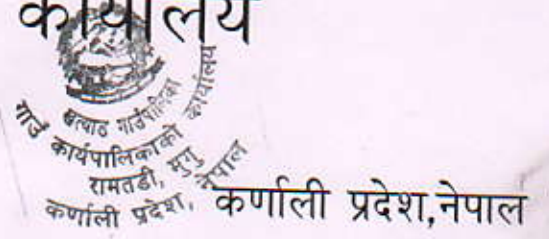 कार्यालय
खत्याड गाउँपालिका
गाउँ कार्यपालिकाको कार्यालय
रामतडी, मुगु
कर्णाली प्रदेश, नेपाल
कर्णाली प्रदेश,नेपाल